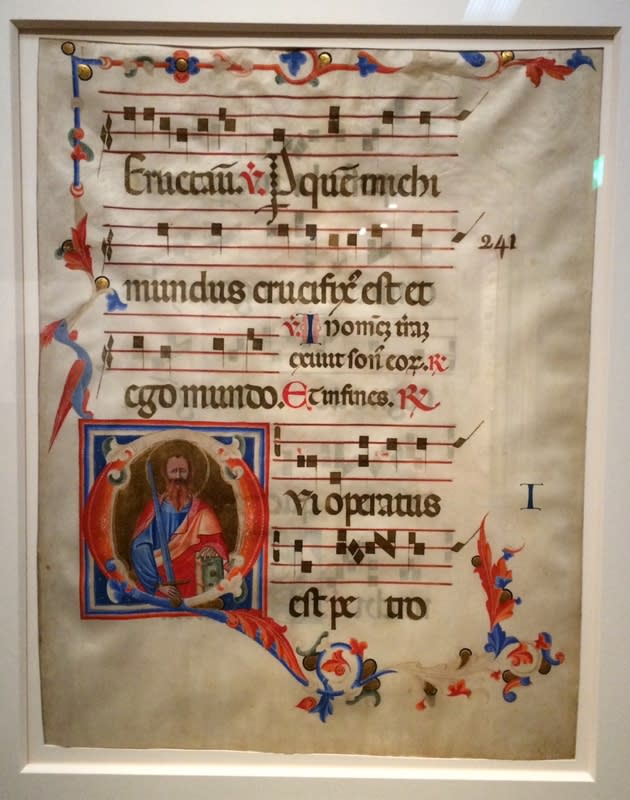 Eructaū. v. P quē michi
241
mundus crucifixꝰ est et
v. In omēz
exiuit eoꝝ. R
ego mundo. Et infines. R
Qvi operatus
I
est pe tro